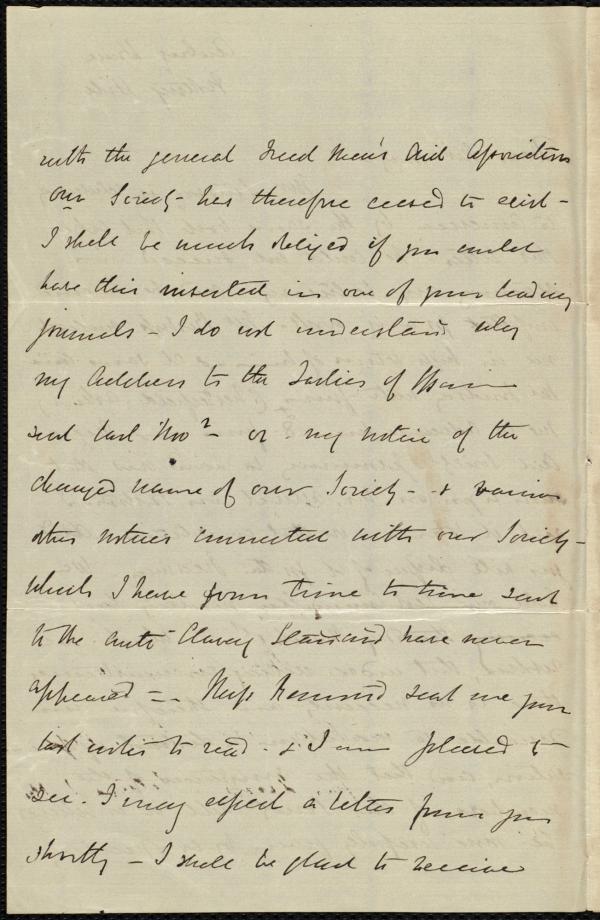 with the general Freed Men's Aid Association
our Society has therefore ceased to exist -
I shall be much obliged if you could
have this inserted in one of your leading
journals - I do not understand why
my Address to the Ladies of Spain
sent last Nov^r - or my notice of the
changed name of our Society - & various
other notices connected with our Society -
which I have from time to time sent
to the Anti-Slavery Standard have never
appeared - Miss Remond sent me your
last notes to read - & I am pleased to
see I may expect a letter from you
shortly - I shall be glad to receive